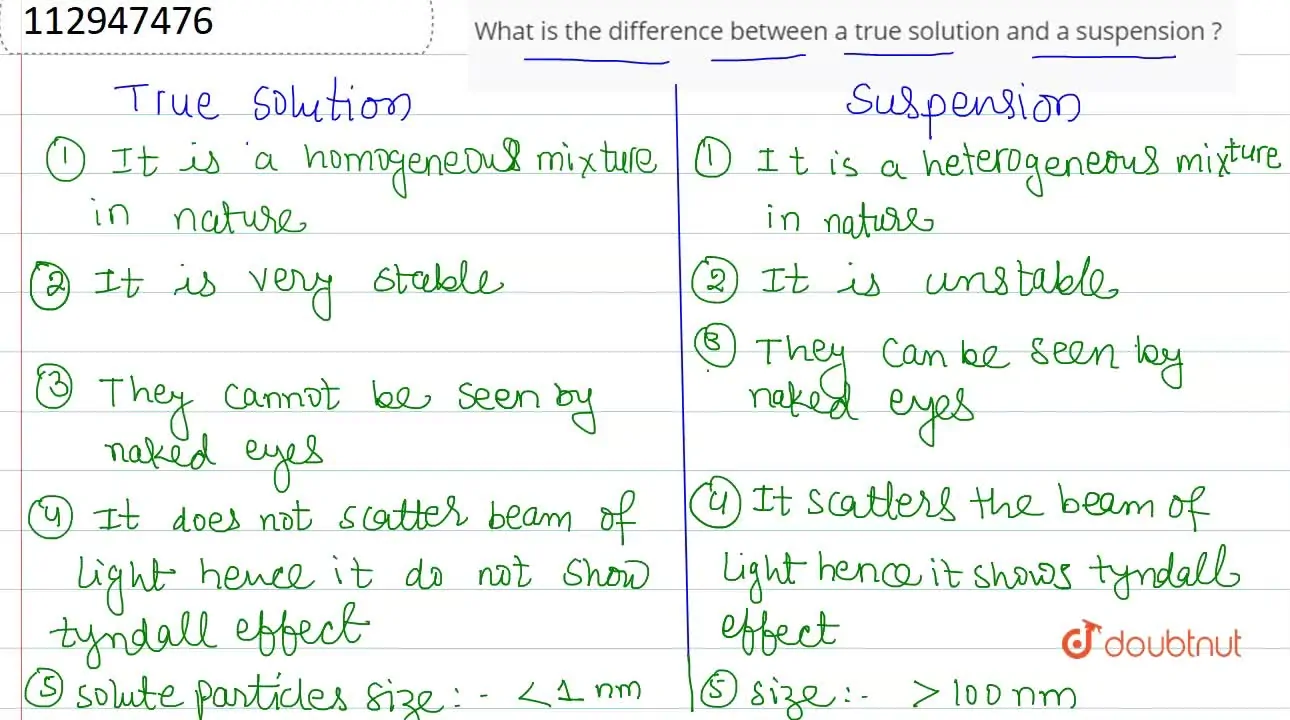 112947476
What is the difference between a true solution and a suspension ?
True solution
① It is a homogeneous mixture
in nature
② It is very stable
③ They cannot be seen by
naked eyes
④ It does not scatter beam of
light hence it do not show
tyndall effect
⑤ solute particles size :- < 1 nm
Suspension
① It is a heterogeneous mixture
in nature
② It is unstable
③ They can be seen by
naked eyes
④ It scatters the beam of
light hence it shows tyndall
effect
⑤ size :- > 100 nm
doubtnut